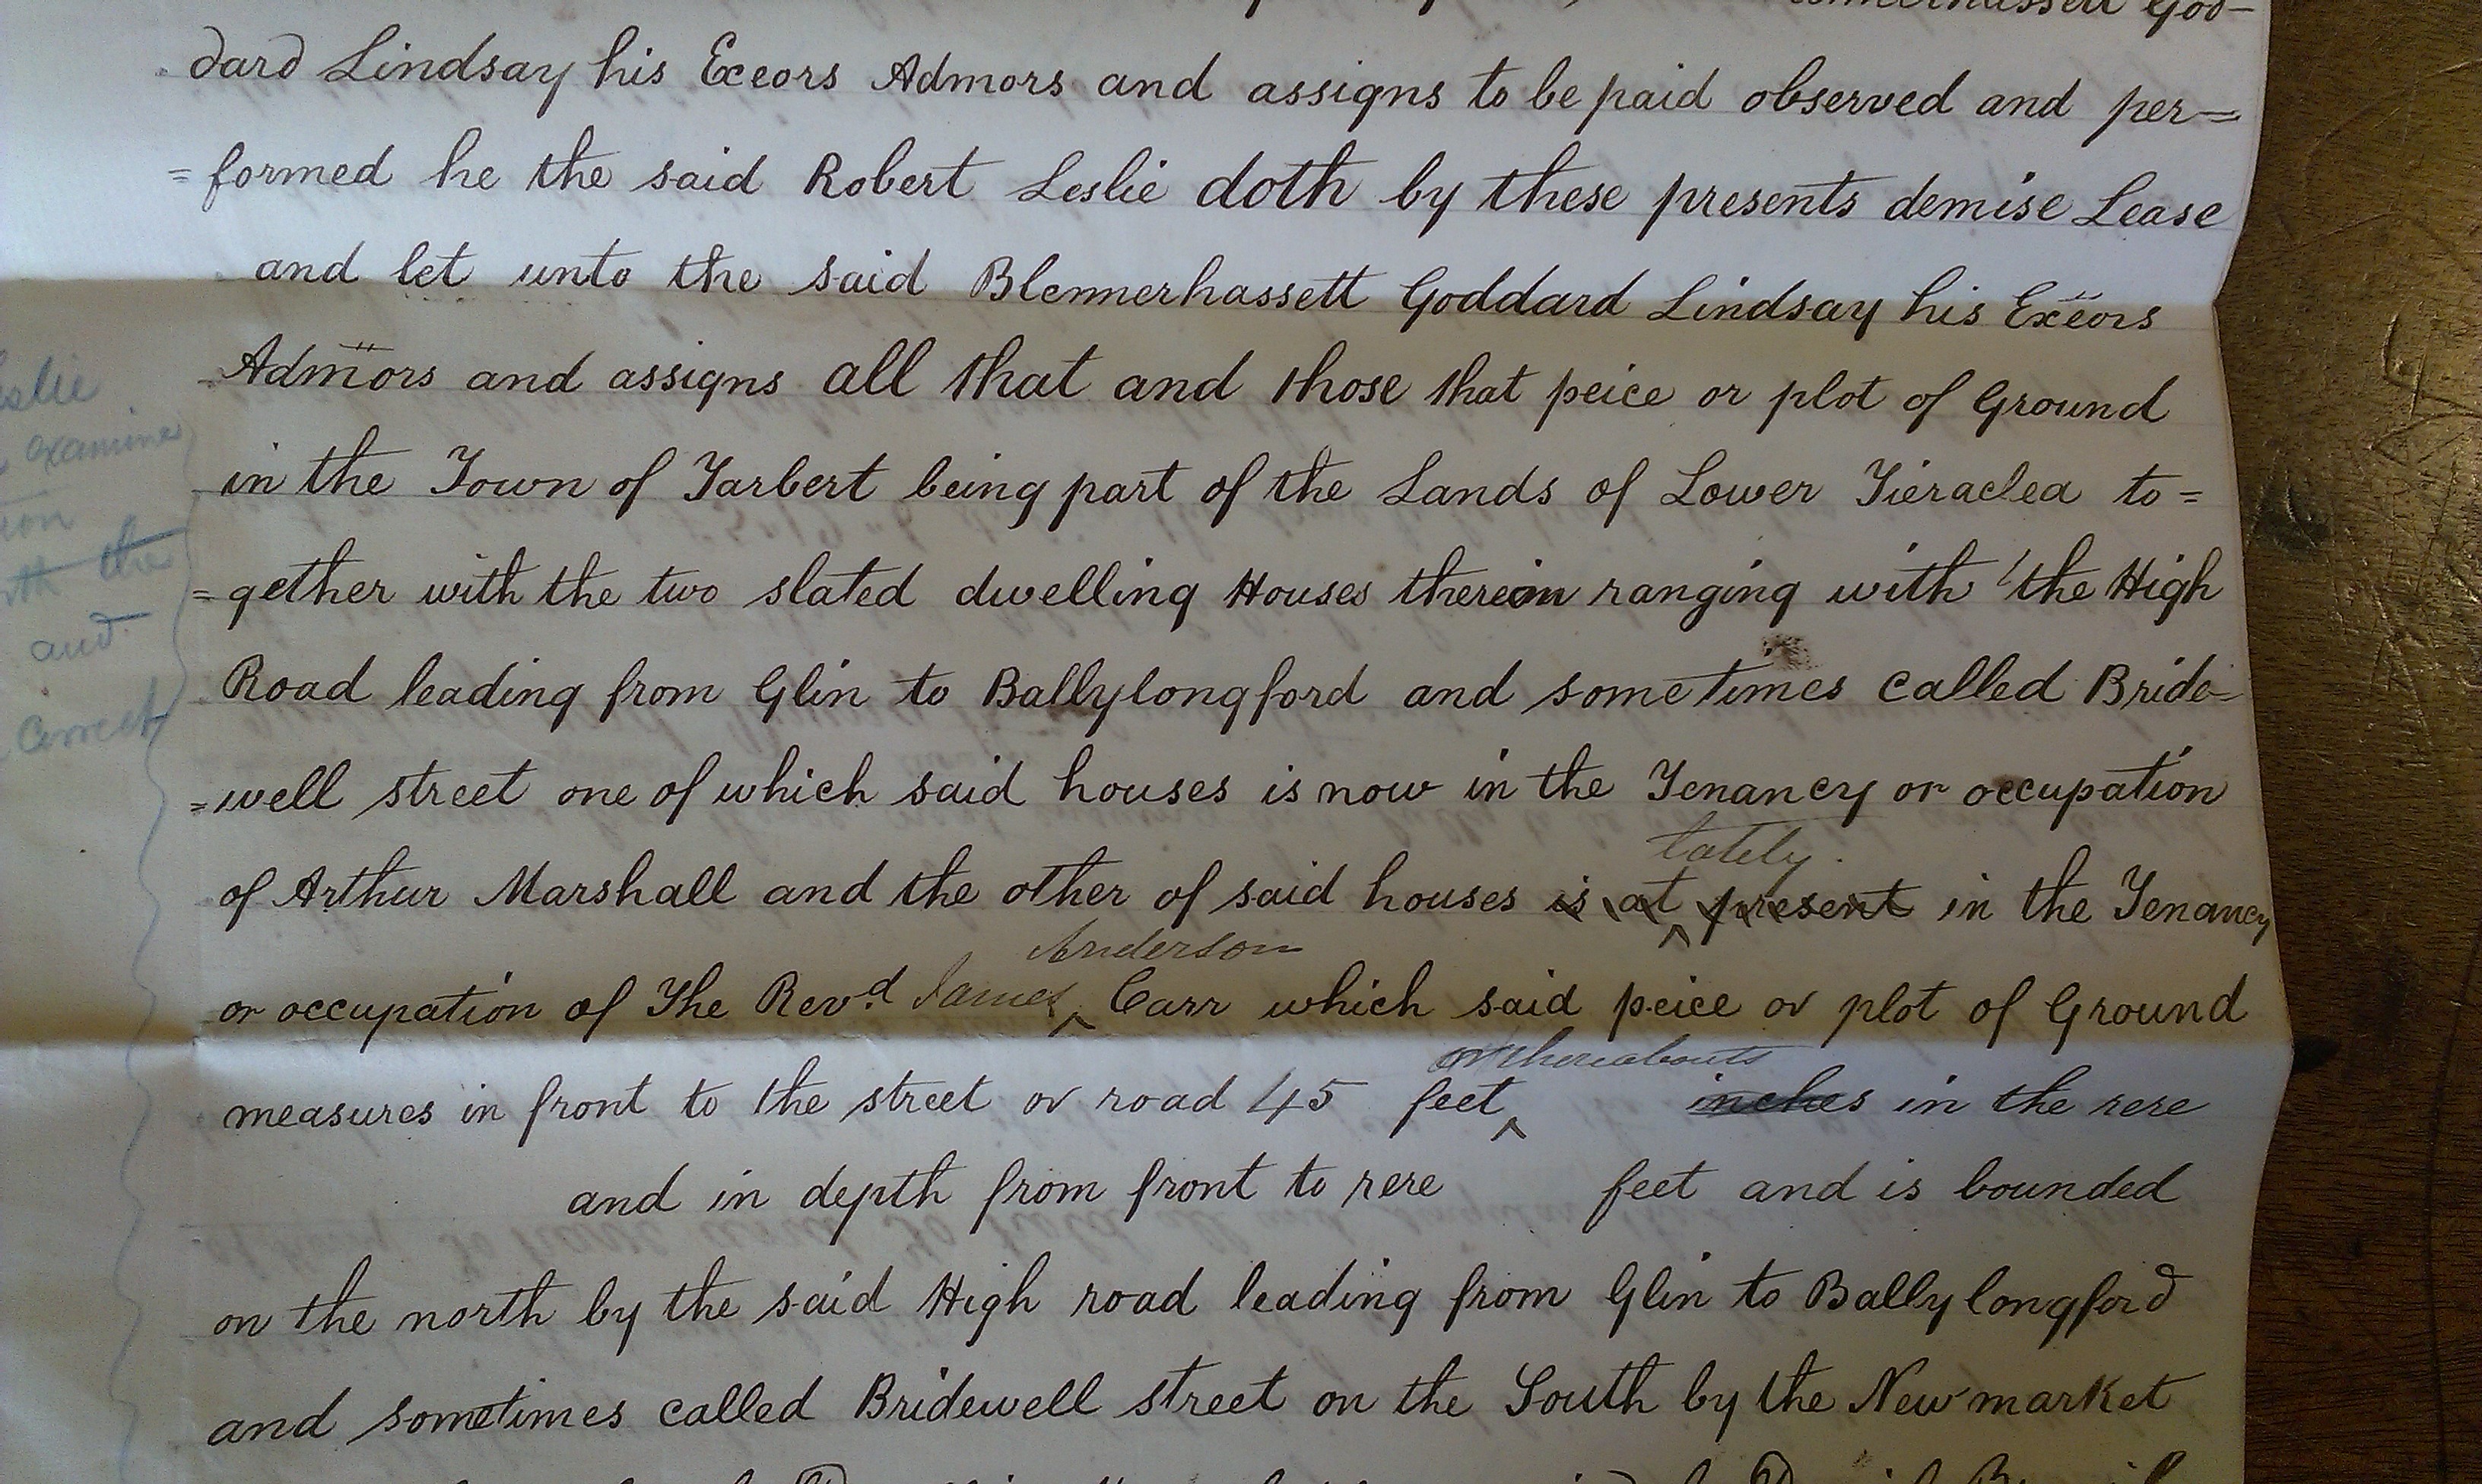 God-
dard Lindsay his Exeors Admors and assigns to be paid observed and per=
=formed he the said Robert Leslie doth by these presents demise Lease
and let unto the said Blennerhassett Goddard Lindsay his Exeors
Admors and assigns all that and those that peice or plot of Ground
in the Town of Tarbert being part of the Lands of Lower Tieraclea to=
=gether with the two slated dwelling Houses therein ranging with the High
Road leading from Glin to Ballylongford and sometimes called Bride-
=well street one of which said houses is now in the Tenancy or occupation
lately
of Arthur Marshall and the other of said houses is at present in the Tenancy
Anderson
or occupation of The Revd James Carr which said peice or plot of Ground
or thereabouts
measures in front to the street or road 45 feet inches in the rere
and in depth from front to rere feet and is bounded
on the north by the said High road leading from Glin to Ballylongford
and sometimes called Bridewell street on the South by the New market
eslie
examine
tion
with the
and
Correct